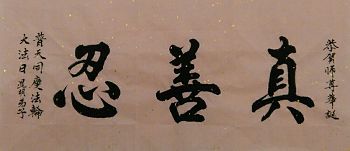 恭賀師尊華誕
真善忍
普天同慶法輪
大法日
弟子